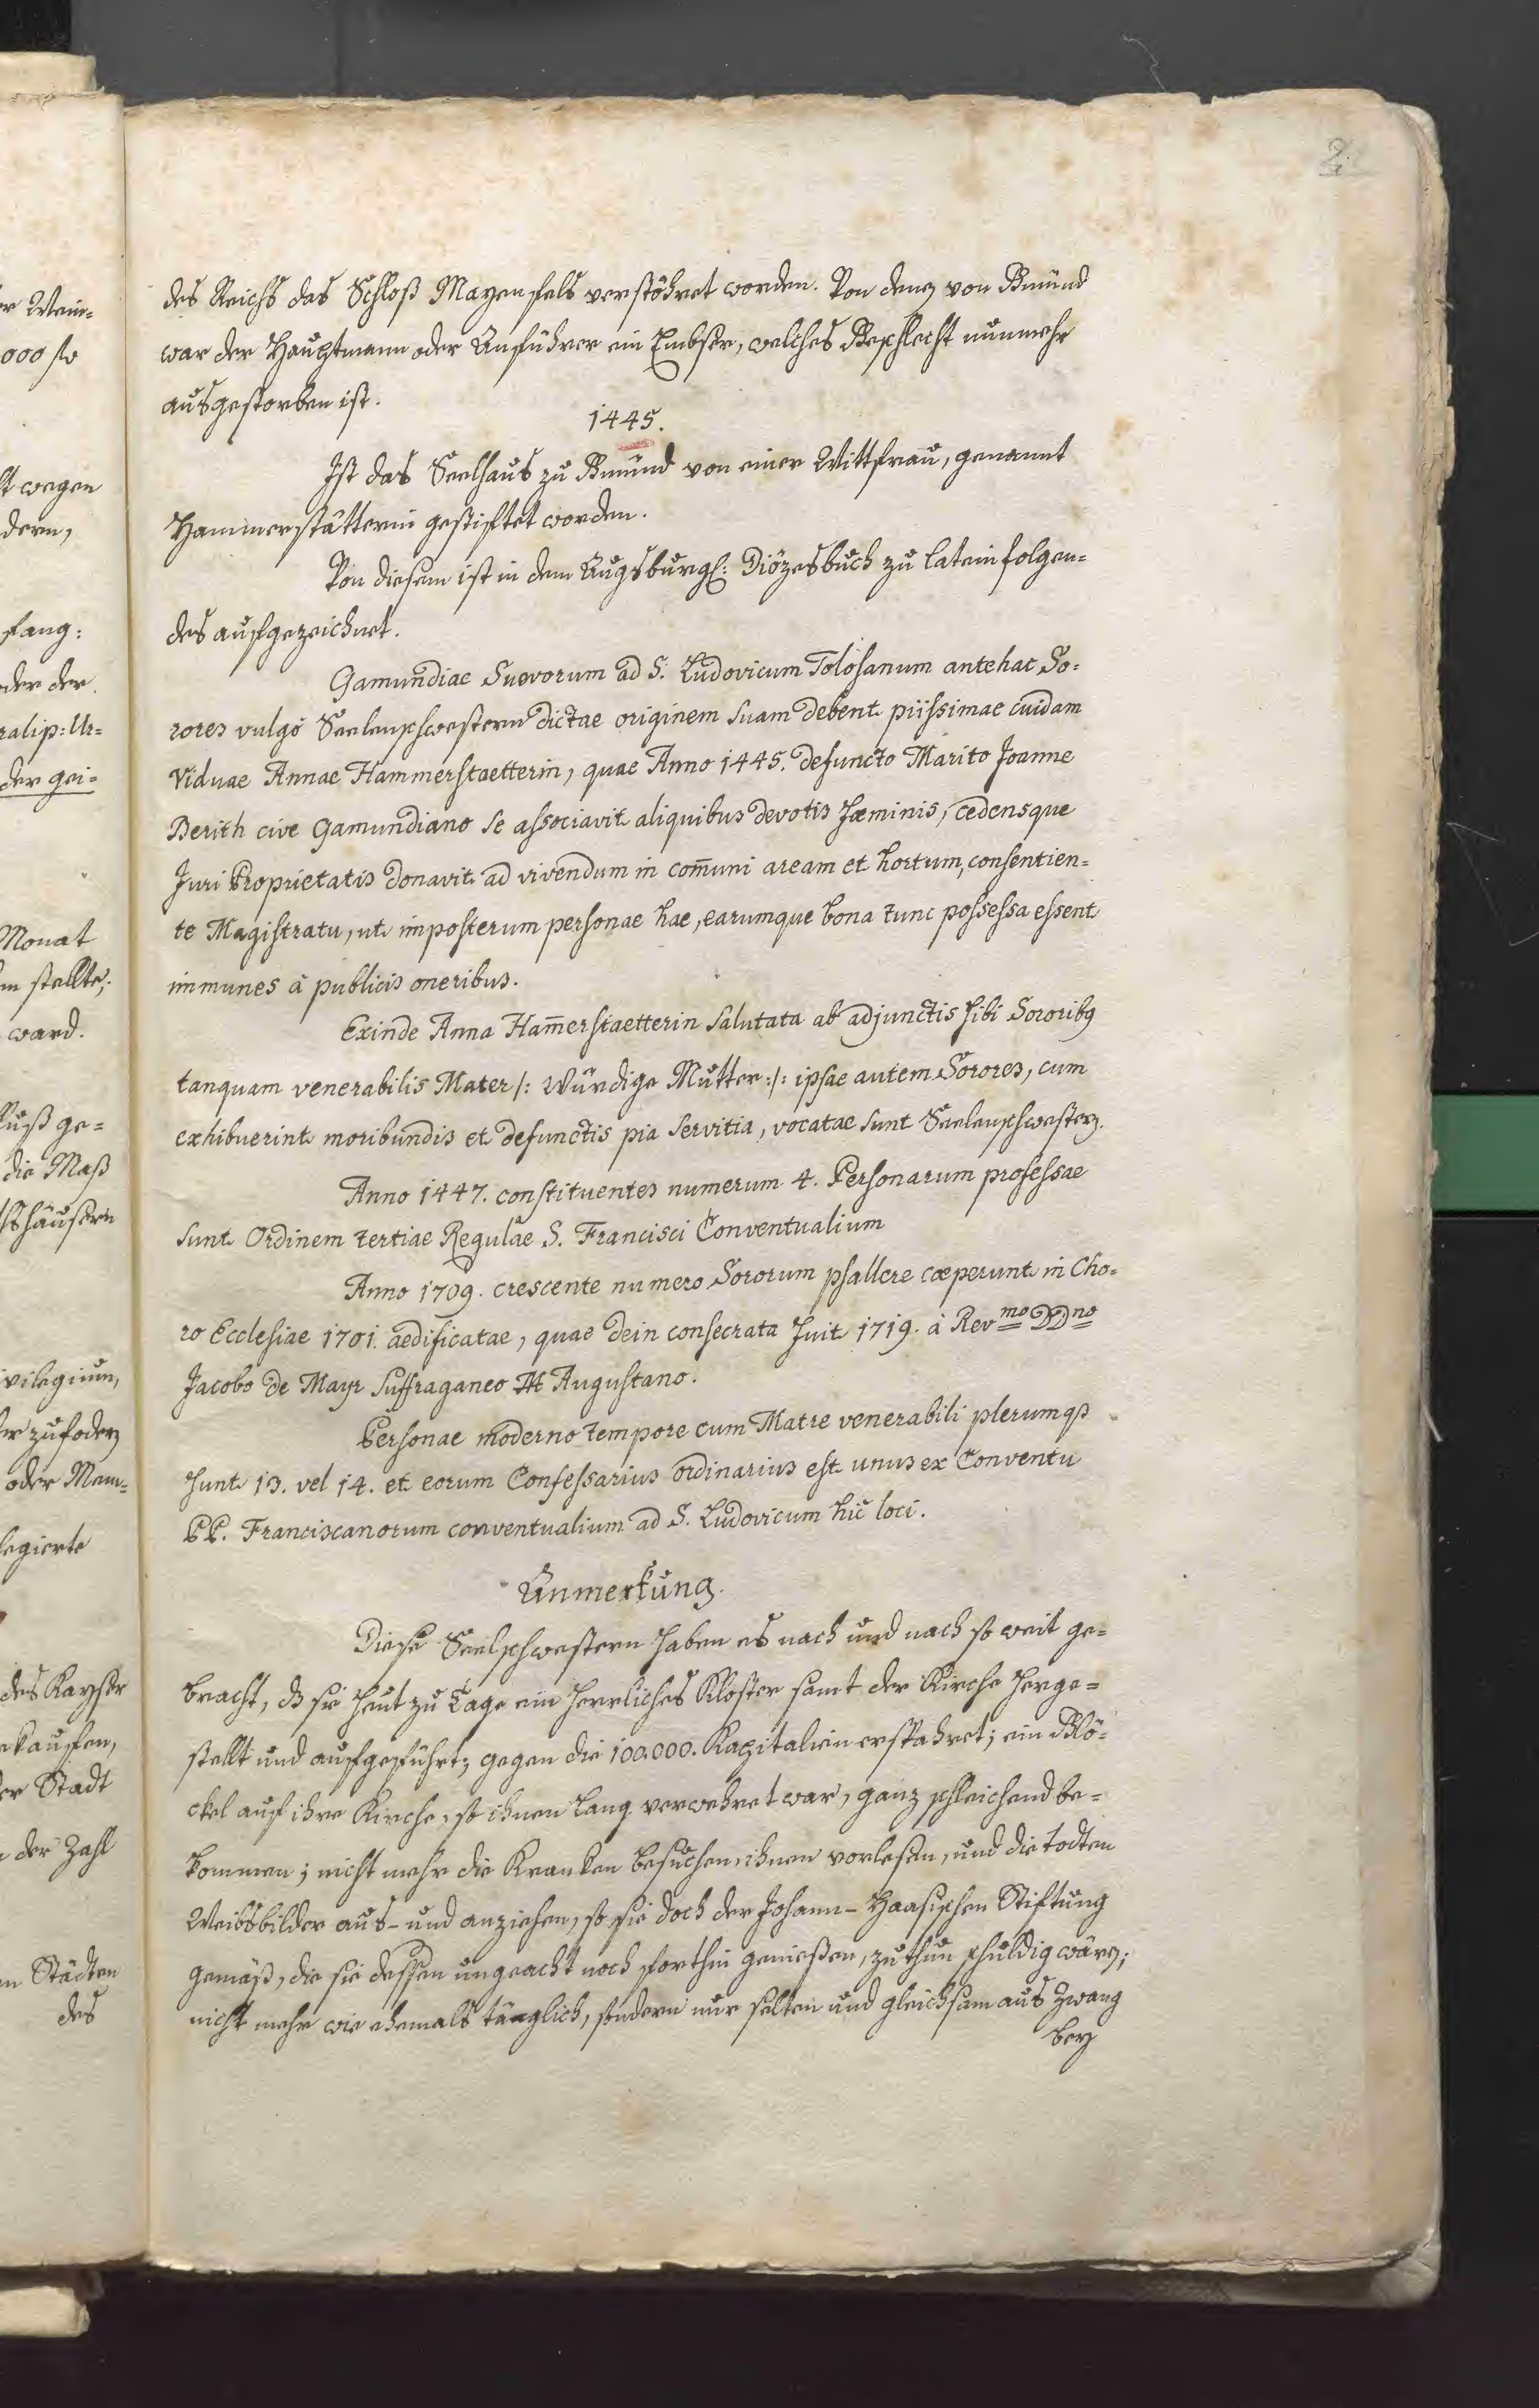 2.
des Reichs das Schloß Mayenfels verstöhret worden. Von denen von Gmünd
war der Hauptmann oder Anführer ein Embser, welches Geschlecht nunmehr
ausgestorben ist.
1445.
Ist das Seelhaus zu Gmünd von einer Wittfrau, genannt
Hammerstätterin gestiftet worden.
Von diesem ist in dem Augsburgl: Diözesbuch zu Latein folgen-
des aufgezeichnet.
Gamundiae Suevorum ad S. Ludovicum Tolosanum antehac So-
rores vulgò Seelenschwestern dictae originem suam debent piissimae cuidam
Viduae Annae Hammerstaetterin, quae Anno 1445. defuncto Marito Joanne
Berith cive Gamundiano se associavit aliquibus devotis fœminis, cedensque
Juri Proprietatis donavit ad vivendum in com̄uni aream et hortum, consentien-
te Magistratu, ut imposterum personae hae, earumque bona tunc possessa essent
immunes à publicis oneribus.
Exinde Anna Ham̄erstaetterin salutata ab adjunctis sibi Sororibq
tanquam venerabilis Mater /: Würdige Mutter :/: ipsae autem Sorores, cum
exhibuerint moribundis et defunctis pia servitia, vocatae sunt Seelenschwestern.
Anno 1447. constituentes numerum 4. Personarum professae
sunt Ordinem tertiae Regulae S. Francisci Conventualium
Anno 1709. crescente numero Sororum psallere cœperunt in Cho-
ro Ecclesiae 1701. aedificatae, quae dein consecrata fuit 1719. à Revmo DDno
Jacobo de Mayr Suffraganeo Augustano.
Personae moderno tempore cum Matre venerabili plerumqȝ
sunt 13. vel 14. et eorum Confessarius ordinarius est unus ex Conventu
PP. Franciscanorum conventualium ad S. Ludovicum hìc loci.
Anmerkung.
Diese Seelschwestern haben es nach und nach so weit ge-
bracht, dß sie heut zu Tage ein herrliches Kloster samt der Kirche herge-
stellt und aufgeführt; gegen die 100.000. Kapitalien erspahret; ein Glö-
ckel auf ihre Kirche, so ihnen lang verwehret war, ganz schleichend be-
kommen; nicht mehr die Kranken besuchen, ihnen vorlesen, und die todten
Weibsbilder aus- und anziehen, so sie doch der Johann-Haasischen Stiftung
gemäß, die sie dessen ungeacht noch forthin genießen, zu thun schuldig wären;
nicht mehr wie ehemals täglich, sondern nur selten und gleichsam aus Zwang
bey